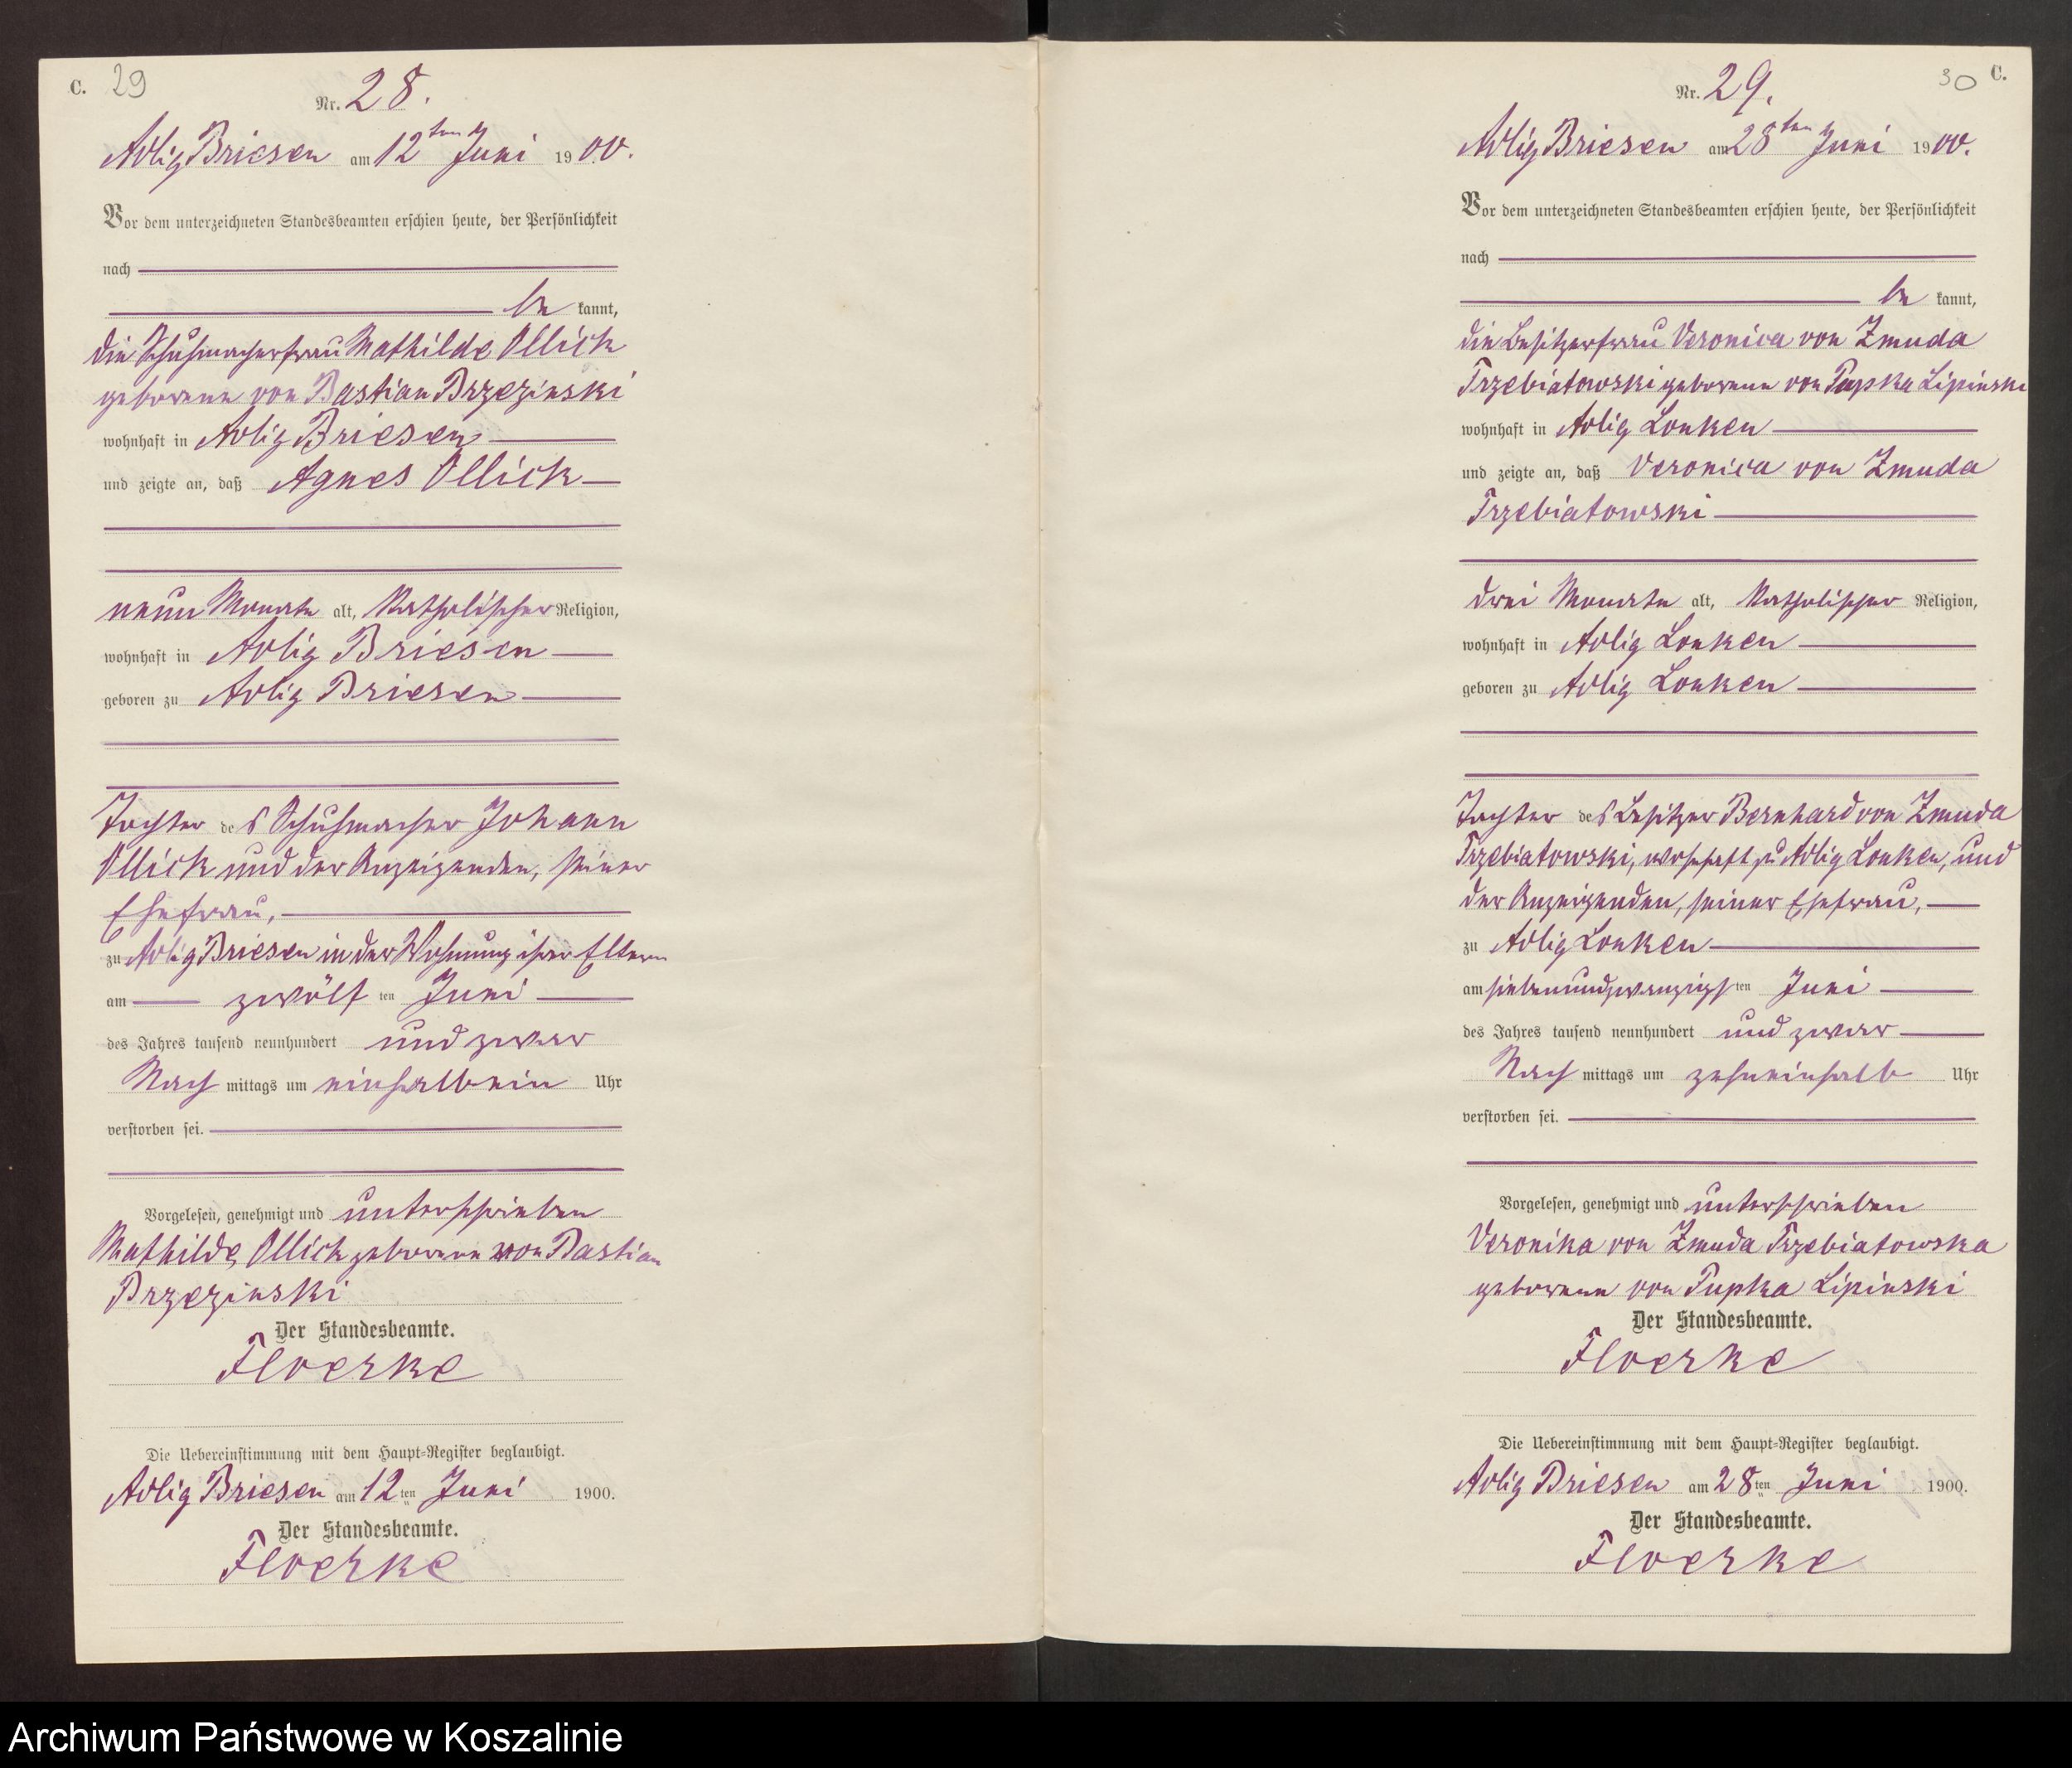 C. 29
Nr. 28.
Adlig Briesen am 12ten Juni 1900.
Vor dem unterzeichneten Standesbeamten erschien heute, der Persönlichkeit
nach
be kannt,
die Schuhmacherfrau Mathilde Ollick
geborene von Bastian Brzezinski
wohnhaft in Adlig Briesen
und zeigte an, daß Agnes Ollick
neun Monate alt, katholischer Religion,
wohnhaft in Adlig Briesen
geboren zu Adlig Briesen
Tochter des Schuhmacher Johann
Ollick und der Anzeigenden, seiner
Ehefrau,
zu Adlig Briesen in der Wohnung ihrer Eltern
am zwölf ten Juni
des Jahres tausend neunhundert und zwar
Nach mittags um einhalb ein Uhr
verstorben sei.
Vorgelesen, genehmigt und unterschrieben
Mathilde Ollick geborene von Bastian
Brzezinski
Der Standesbeamte.
Floerke
Die Uebereinstimmung mit dem Haupt-Register beglaubigt.
Adlig Briesen am 12ten Juni 1900.
Der Standesbeamte.
Floerke
30 C.
Nr. 29.
Adlig Briesen am 28ten Juni 1900.
Vor dem unterzeichneten Standesbeamten erschien heute, der Persönlichkeit
nach
be kannt,
die Besitzerfrau Veronica von Zmuda
Trzebiatowski geborene von Pupka Lipinski
wohnhaft in Adlig Lonken
und zeigte an, daß Veronica von Zmuda
Trzebiatowski
drei Monate alt, katholischer Religion,
wohnhaft in Adlig Lonken
geboren zu Adlig Lonken
Tochter des Besitzer Bernhard von Zmuda
Trzebiatowski, wohnhaft zu Adlig Lonken, und
der Anzeigenden, seiner Ehefrau,
zu Adlig Lonken
am siebenundzwanzigsten Juni
des Jahres tausend neunhundert und zwar
Nach mittags um zehneinhalb Uhr
verstorben sei.
Vorgelesen, genehmigt und unterschrieben
Veronika von Zmuda Trzebiatowska
geborene von Pupka Lipinski
Der Standesbeamte.
Floerke
Die Uebereinstimmung mit dem Haupt-Register beglaubigt.
Adlig Briesen am 28ten Juni 1900.
Der Standesbeamte.
Floerke
Archiwum Państwowe w Koszalinie